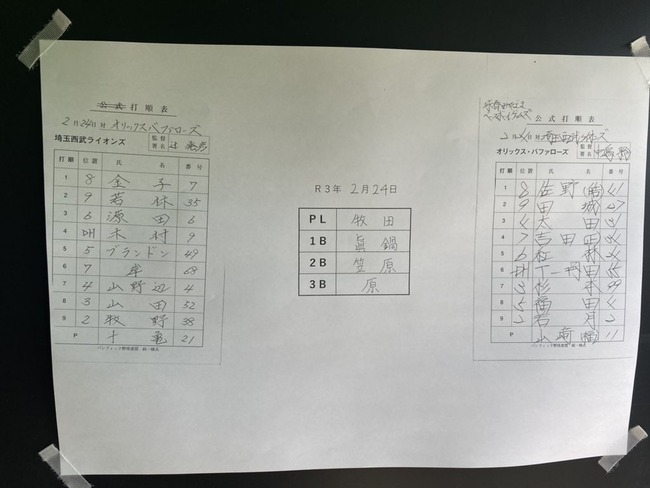 公式 打順表
2月24日 対 オリックスバファローズ
埼玉西武ライオンズ 監督署名 辻 発彦
打順 位置 氏名 番号
1 8 金子 7
2 9 若林 35
3 6 源田 6
4 DH 木村 9
5 5 ブランドン 49
6 7 岸 68
7 4 山野辺 4
8 3 山田 52
9 2 牧野 38
P 十亀 21
パシフィック野球連盟 統一様式
R3年 2月24日
PL 牧田
1B 眞鍋
2B 笠原
3B 原
公式打順表
2月24日 対 埼玉西武ライオンズ
オリックス・バファローズ 監督署名 中嶋 聡
打順 位置 氏名 番号
1 8 佐野(皓) 41
2 9 田城
3 4 太田 31
4 7 吉田正
5 6 紅林
6 DH T-岡田 55
7 3 杉本 99
8 5 福田
9 2 若月 2
P 山﨑福 11
パシフィック野球連盟 統一様式